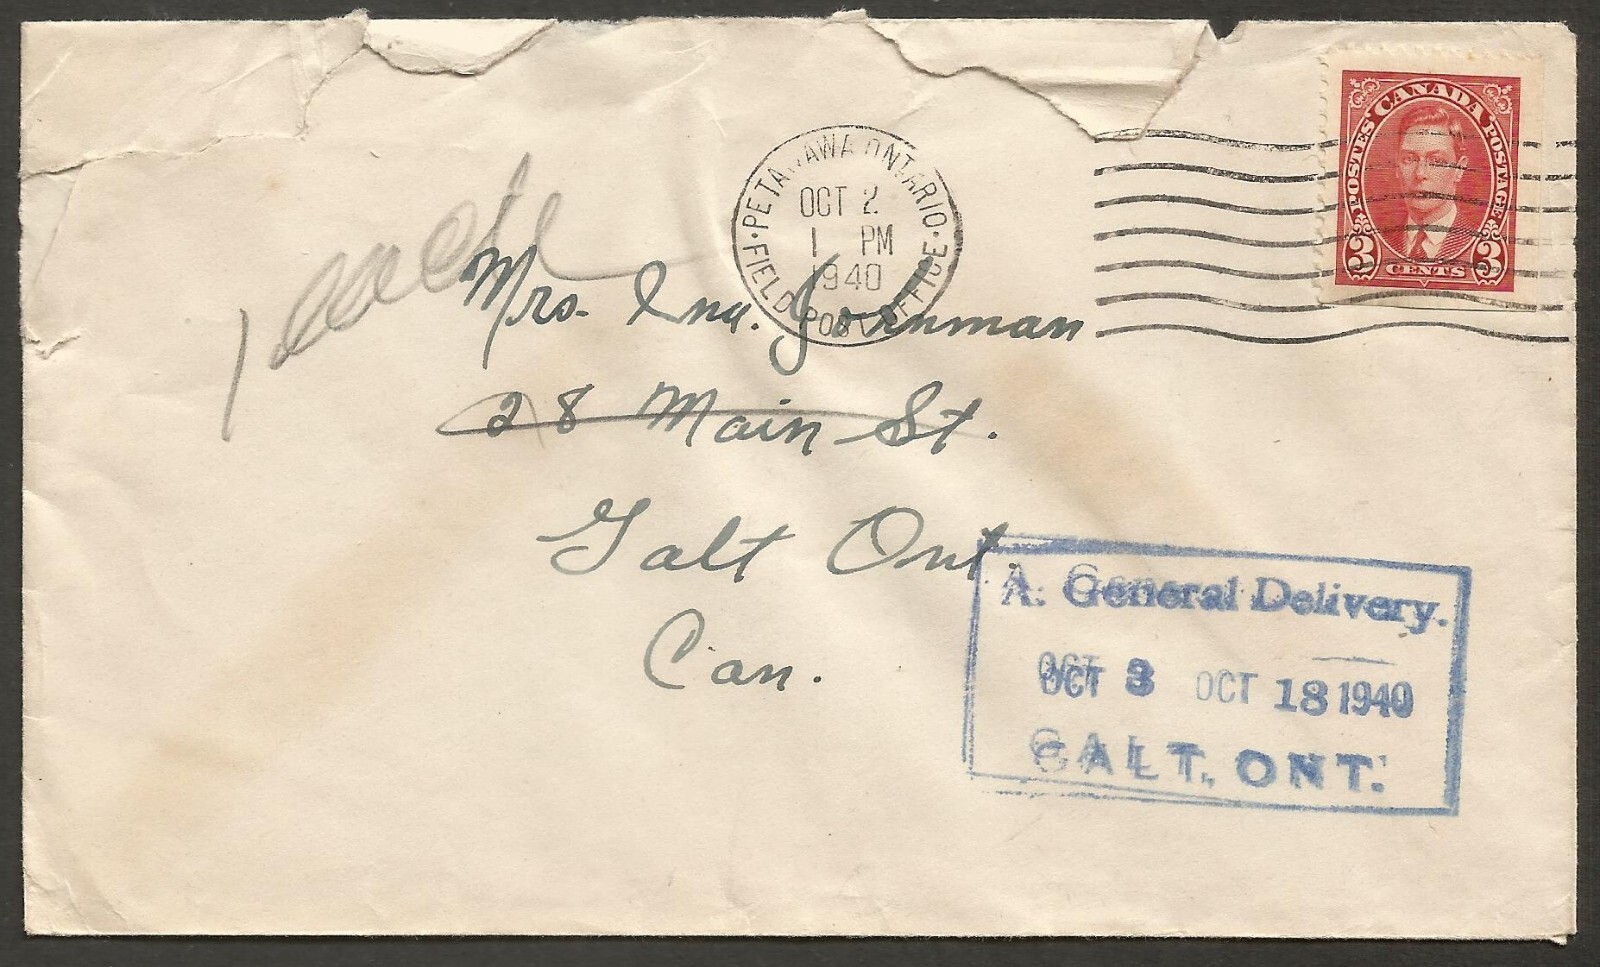 POSTES CANADA POSTAGE
3 CENTS 3
PETAWAWA ONTARIO
OCT 2
1 PM
1940
FIELD POST OFFICE
Mrs. Ina.
28 Main St.
Galt Ont.
Can.
A. General Delivery.
OCT 3 OCT 18 1940
GALT, ONT.